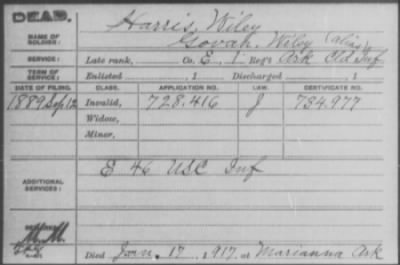 DEAD.
Harris, Wiley
NAME OF SOLDIER: Govah, Wiley (alias)
SERVICE: Late rank, Co. E, 1 Reg't Ark Cld Inf
TERM OF SERVICE: Enlisted , 1 Discharged , 1
DATE OF FILING. CLASS. APPLICATION NO. LAW. CERTIFICATE NO.
1889 Sep 12 Invalid, 728.416 J 734.977
Widow,
Minor,
E 46 USC Inf
ADDITIONAL SERVICES:
REMARKS:
Died Jan. 17, 1917, at Marianna Ark